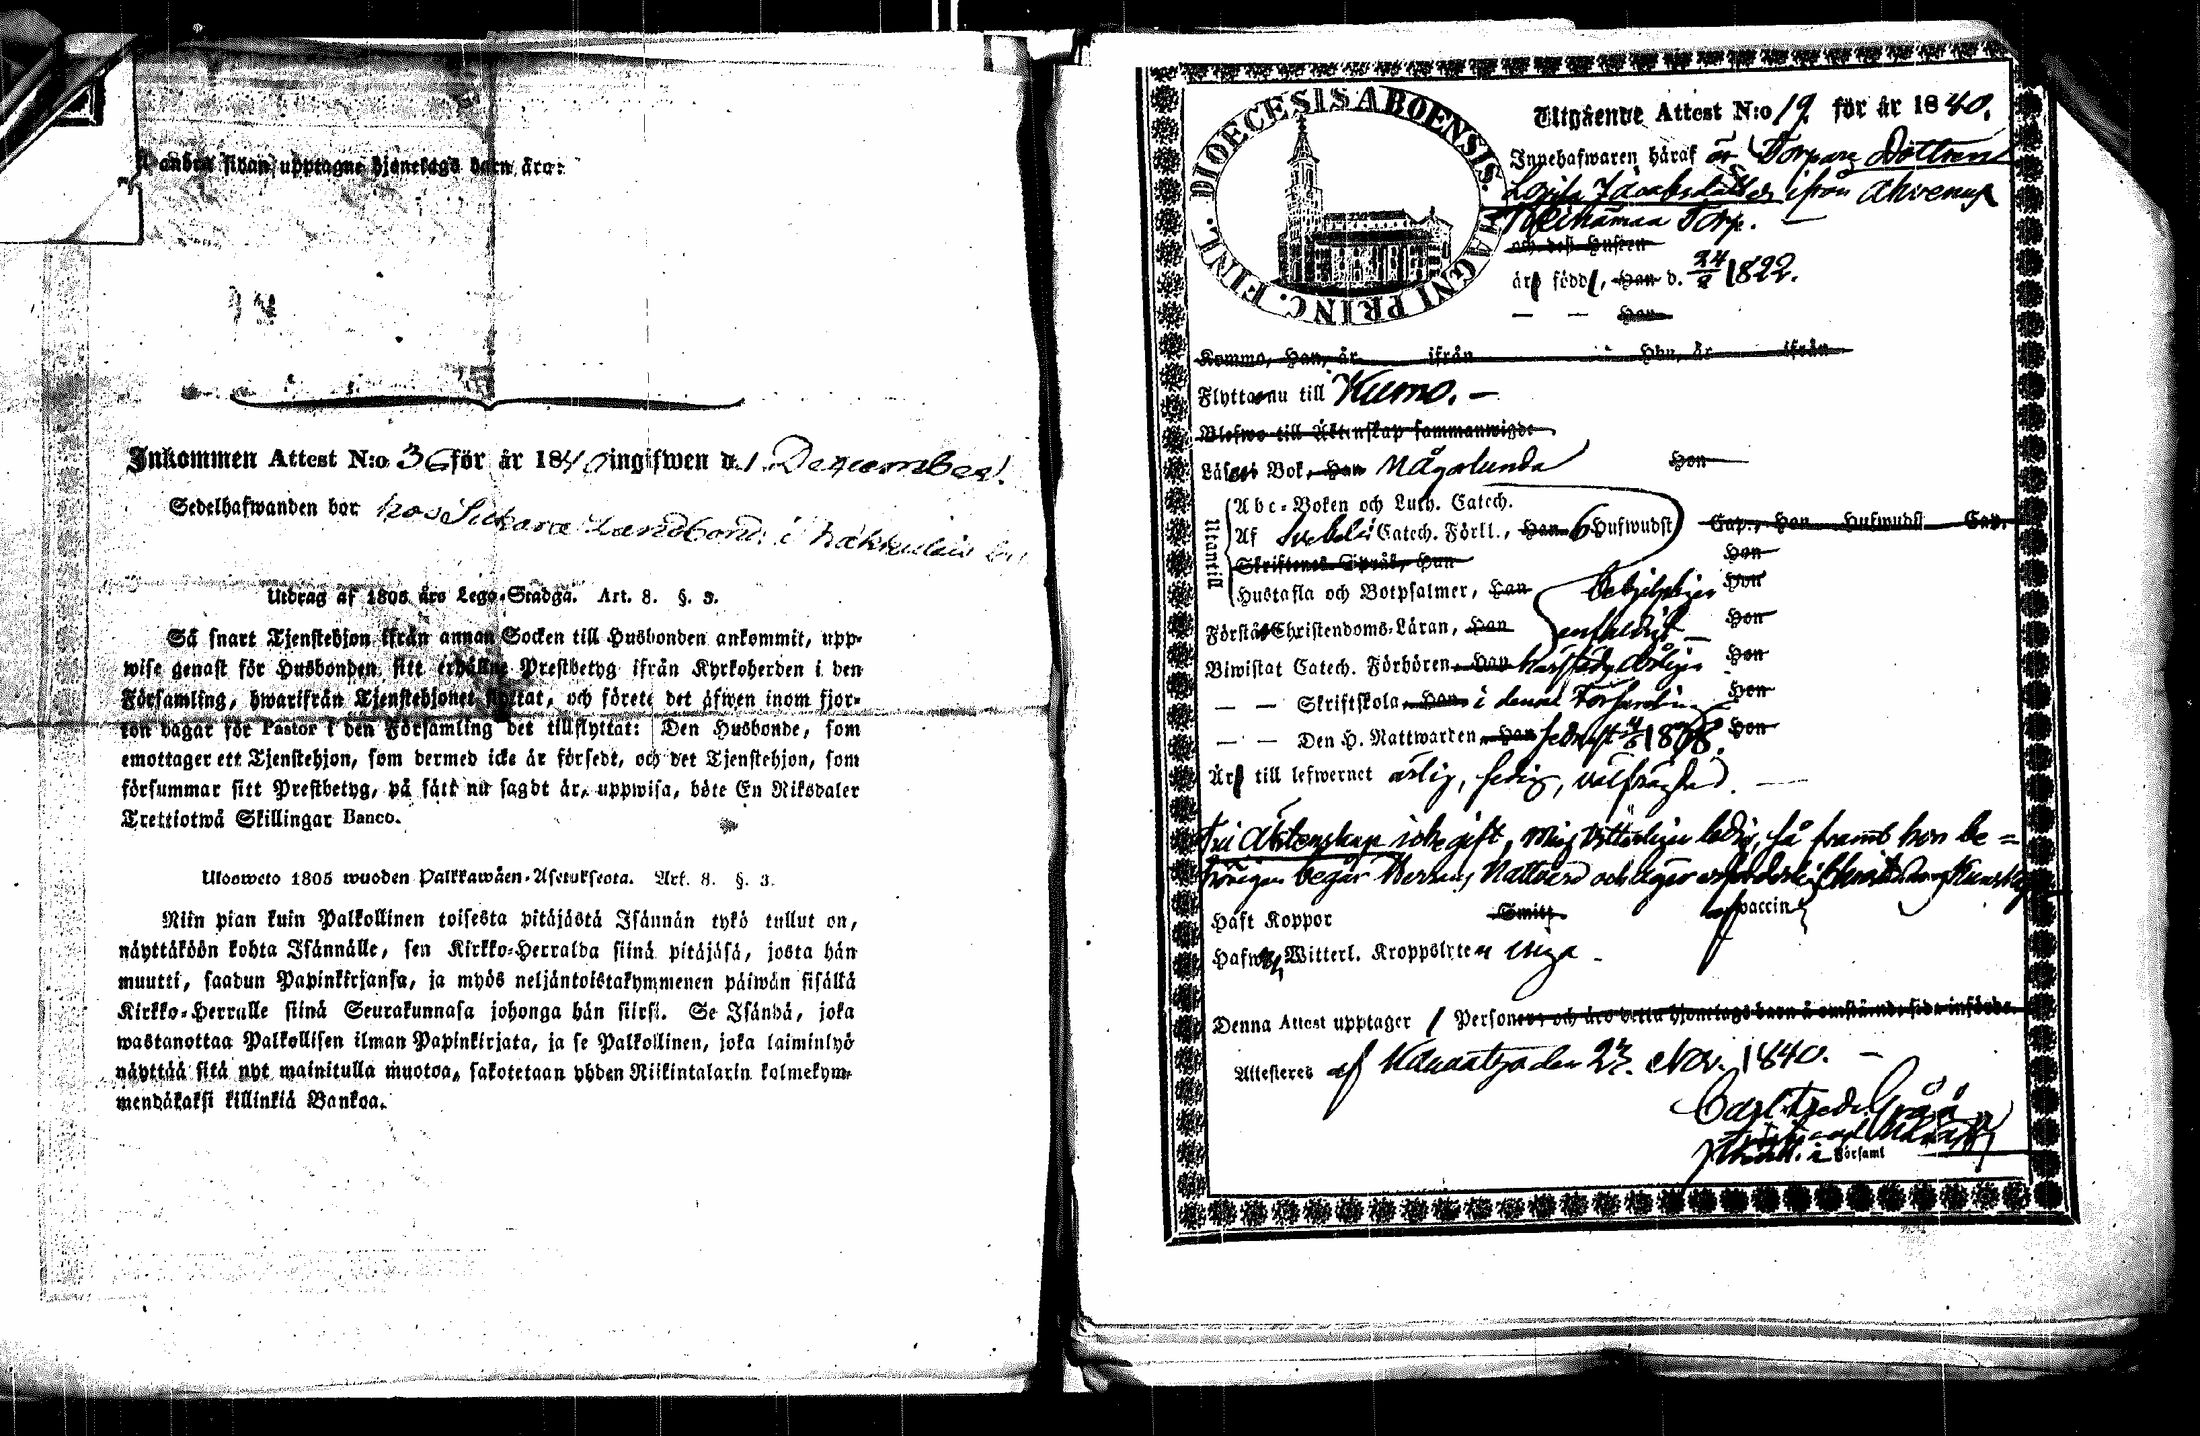 å andra sidan upptagne hjonelags barn äro:
Inkommen Attest N:o 36 för år 1840 ingifwen d. 1 December.
Sedelhafwanden bor hos Landbond i
Utdrag af 1805 års Lego-Stadga. Art. 8. §. 3.
Så snart Tjenstehjon ifrån annan Socken till Husbonden ankommit, upp-
wise genast för Husbonden sitt erhållne Prestbetyg ifrån Kyrkoherden i den
Församling, hwarifrån Tjenstehjonet flyttat, och förete det äfwen inom fjor-
ton dagar för Pastor i den Församling det tillflyttat: Den Husbonde, som
emottager ett Tjenstehjon, som dermed icke är försedt, och det Tjenstehjon, som
försummar sitt Prestbetyg, på sätt nu sagdt är, uppwisa, böte En Riksdaler
Trettiotwå Skillingar Banco.
Ulosweto 1805 wuoden Palkkawäen-Asetuksesta. Art. 8. §. 3.
Niin pian kuin Palkollinen toisesta pitäjästä Isännän tykö tullut on,
näyttäköön kohta Isännälle, sen Kirkko-Herralda siinä pitäjäsä, josta hän
muutti, saadun Papinkirjansa, ja myös neljäntoistakymmenen päiwän sisällä
Kirkko-Herralle siinä Seurakunnasa johonga hän siirsi. Se Isändä, joka
wastanottaa Palkollisen ilman Papinkirjata, ja se Palkollinen, joka laiminlyö
näyttää sitä nyt mainitulla muotoa, sakotetaan yhden Riikintalarin kolmekym-
mendäkaksi killinkiä Bankoa.
DIOECESIS ABOENSIS. MAGNI PRINC. FINL.
Utgående Attest N:o 19 för år 1840.
Innehafwaren häraf är Torpare Dottren
Lovisa Jacobsdotter ifrån
Torp.
och dess Hustru
är född, Han d. 24/2 1822.
— — Hon
Komma, Han, år ifrån Hon, år ifrån
Flyttar nu till Kumo. —
Blefwo till Äktenskap sammanwigde
Läser i Bok, Han någorlunda Hon
Utantill
Abc-Boken och Luth. Catech.
Af Svebelii Catech. Förkl., Han 6 Hufwudst Cap., Hon Hufwudst Cap.
Skriftenes Språk, Han Hon
Hustafla och Botpsalmer, Han Hon
Förstår Christendoms-Läran, Han enfaldigt — Hon
Biwistat Catech. Förhören, Han Hon
— — Skriftskola, Han i denna Församling Hon
— — Den H. Nattwarden, Han sednast Hon
Är till lefwernet ärlig, sedig, välfrägdad. —
Till Äktenskap icke gift, mig vitterligen ledig, så framt hon be=
hörigen begår Herrens Nattvard och äger erforderlig Christendoms Kunskap
Haft Koppor Smitt vaccin
Hafwer Witterl. Kroppslyten inga.
Denna Attest upptager 1 Personer, och äro detta hjonelags barn å omstående sida införde.
Attesteras af Kauvatsa den 23. Nov. 1840. —
Carl Fredr.
i Församl